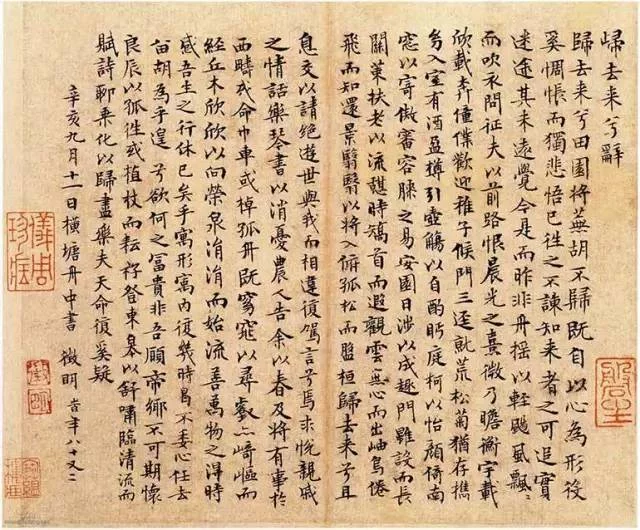 歸去来兮辭
歸去来兮田園将蕪胡不歸既自以心為形役
奚惆悵而獨悲悟已往之不諫知来者之可追實
迷途其未遠覺今是而昨非舟摇以輕颺風飄〻
而吹衣問征夫以前路恨晨光之熹微乃瞻衡宇載
欣載奔僮僕歡迎稚子候門三逕就荒松菊猶存携
幼入室有酒盈樽引壺觴以自酌眄庭柯以怡顔倚南
窓以寄傲審容膝之易安園日涉以成趣門雖設而長
關策扶老以流憩時矯首而遐觀雲無心而出岫鳥倦
飛而知還景翳翳以将入撫孤松而盤桓歸去来兮且
息交以請絶遊世與我而相違復駕言兮焉求悦親戚
之情話樂琴書以消憂農人告余以春及将有事於
西疇或命巾車或棹孤舟既窈窕以尋壑亦崎嶇而
經丘木欣欣以向榮泉涓涓而始流善萬物之得時
感吾生之行休已矣乎寓形寓内復幾時曷不委心任去
留胡為乎遑兮欲何之冨貴非吾願帝鄉不可期懷
良辰以孤往或植杖而耘耔登東皋以舒嘯臨清流而
賦詩聊乗化以歸盡樂夫天命復奚疑
辛亥九月十一日橫塘舟中書 徵明 時年八十又二
徵明